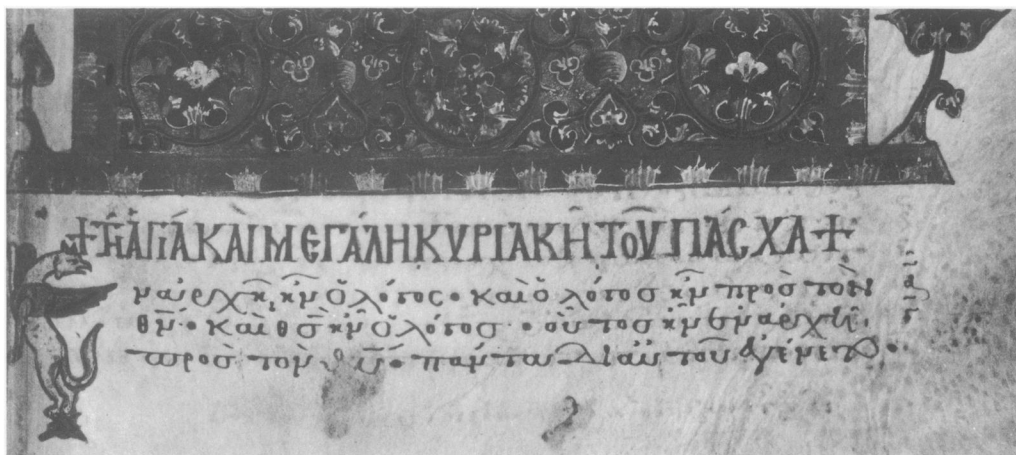 + ΤΗ ΑΓΙΑ ΚΑΙ ΜΕΓΑΛΗ ΚΥΡΙΑΚΗ ΤΟΥ ΠΑΣΧΑ +
Εν ἀρχῆ ἦν ὁ λόγος · καὶ ὁ λόγος ἦν πρὸς τὸν
θ̅ν̅ · καὶ θ̅ς̅ ἦν ὁ λόγος · οὗτος ἦν ἐν ἀρχῆ
πρὸς τὸν θ̅ν̅ · πάντα δι αὐτοῦ ἐγένετο ·